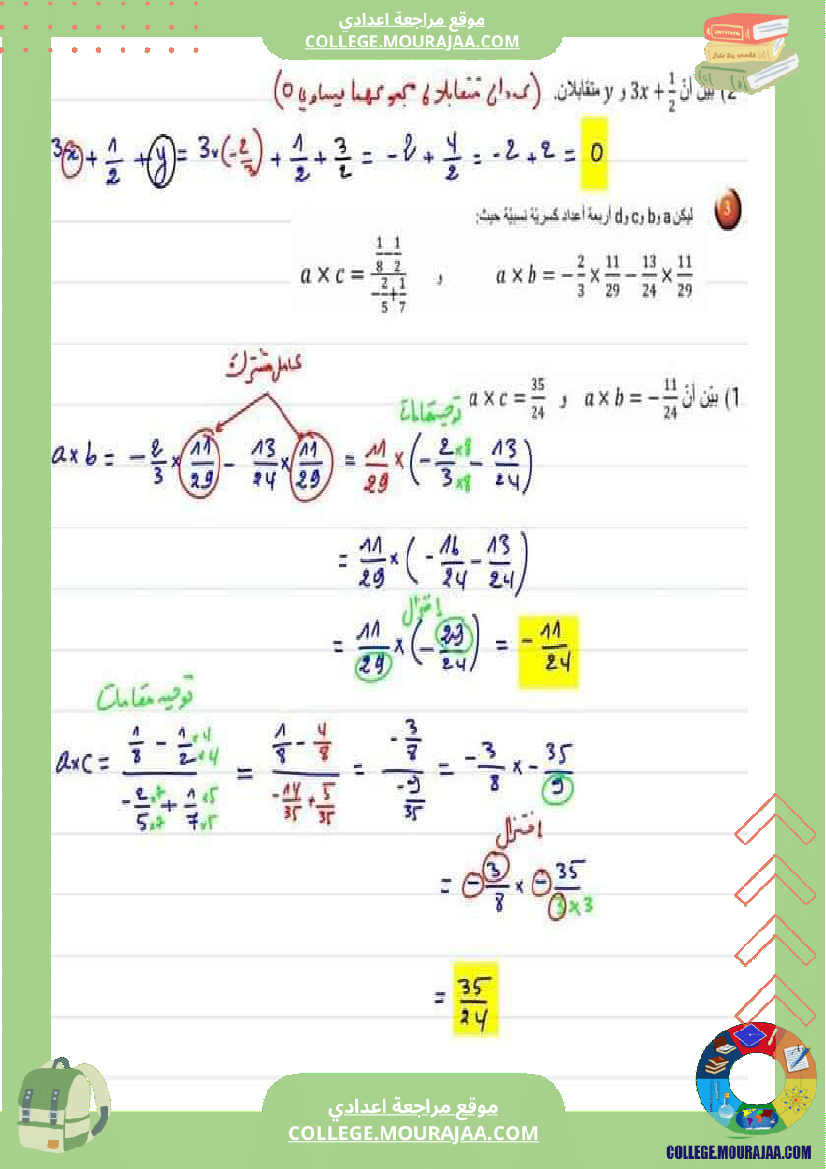 موقع مراجعة اعدادي
COLLEGE.MOURAJAA.COM
2) بيّن أنّ 3x + 1/2 و y متقابلان. (عددان متقابلان مجموعهما يساوي 0)
3x + 1/2 + y = 3×(-2/3) + 1/2 + 3/2 = -2 + 4/2 = -2 + 2 = 0
3 ليكن a وb وc وd أربعة أعداد كسريّة نسبيّة حيث:
a × b = -2/3 × 11/29 - 13/24 × 11/29 و a × c = (1/8 - 1/2)/(-2/5 + 1/7)
عامل مشترك
1) بيّن أنّ a × b = -11/24 و a × c = 35/24
a×b = -2/3 × 11/29 - 13/24 × 11/29 = 11/29 × (-2×8/3×8 - 13/24)
= 11/29 × (-16/24 - 13/24)
اختزال
= 11/29 × (-29/24) = -11/24
توحيد مقامات
a×c = (1/8 - 1×4/2×4)/(-2×7/5×7 + 1×5/7×5) = (1/8 - 4/8)/(-14/35 + 5/35) = (-3/8)/(-9/35) = -3/8 × -35/9
اختزال
= -3/8 × -35/3×3
= 35/24
موقع مراجعة اعدادي
COLLEGE.MOURAJAA.COM
COLLEGE.MOURAJAA.COM